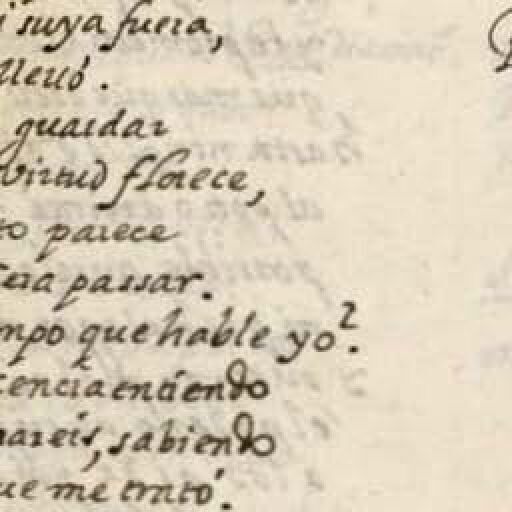 suya fuera,
lleuó.
guardar
virtud florece,
to parece
passar.
mpo que hable yo?.
tencia entiendo
nareis, sabiendo
ue me trató.